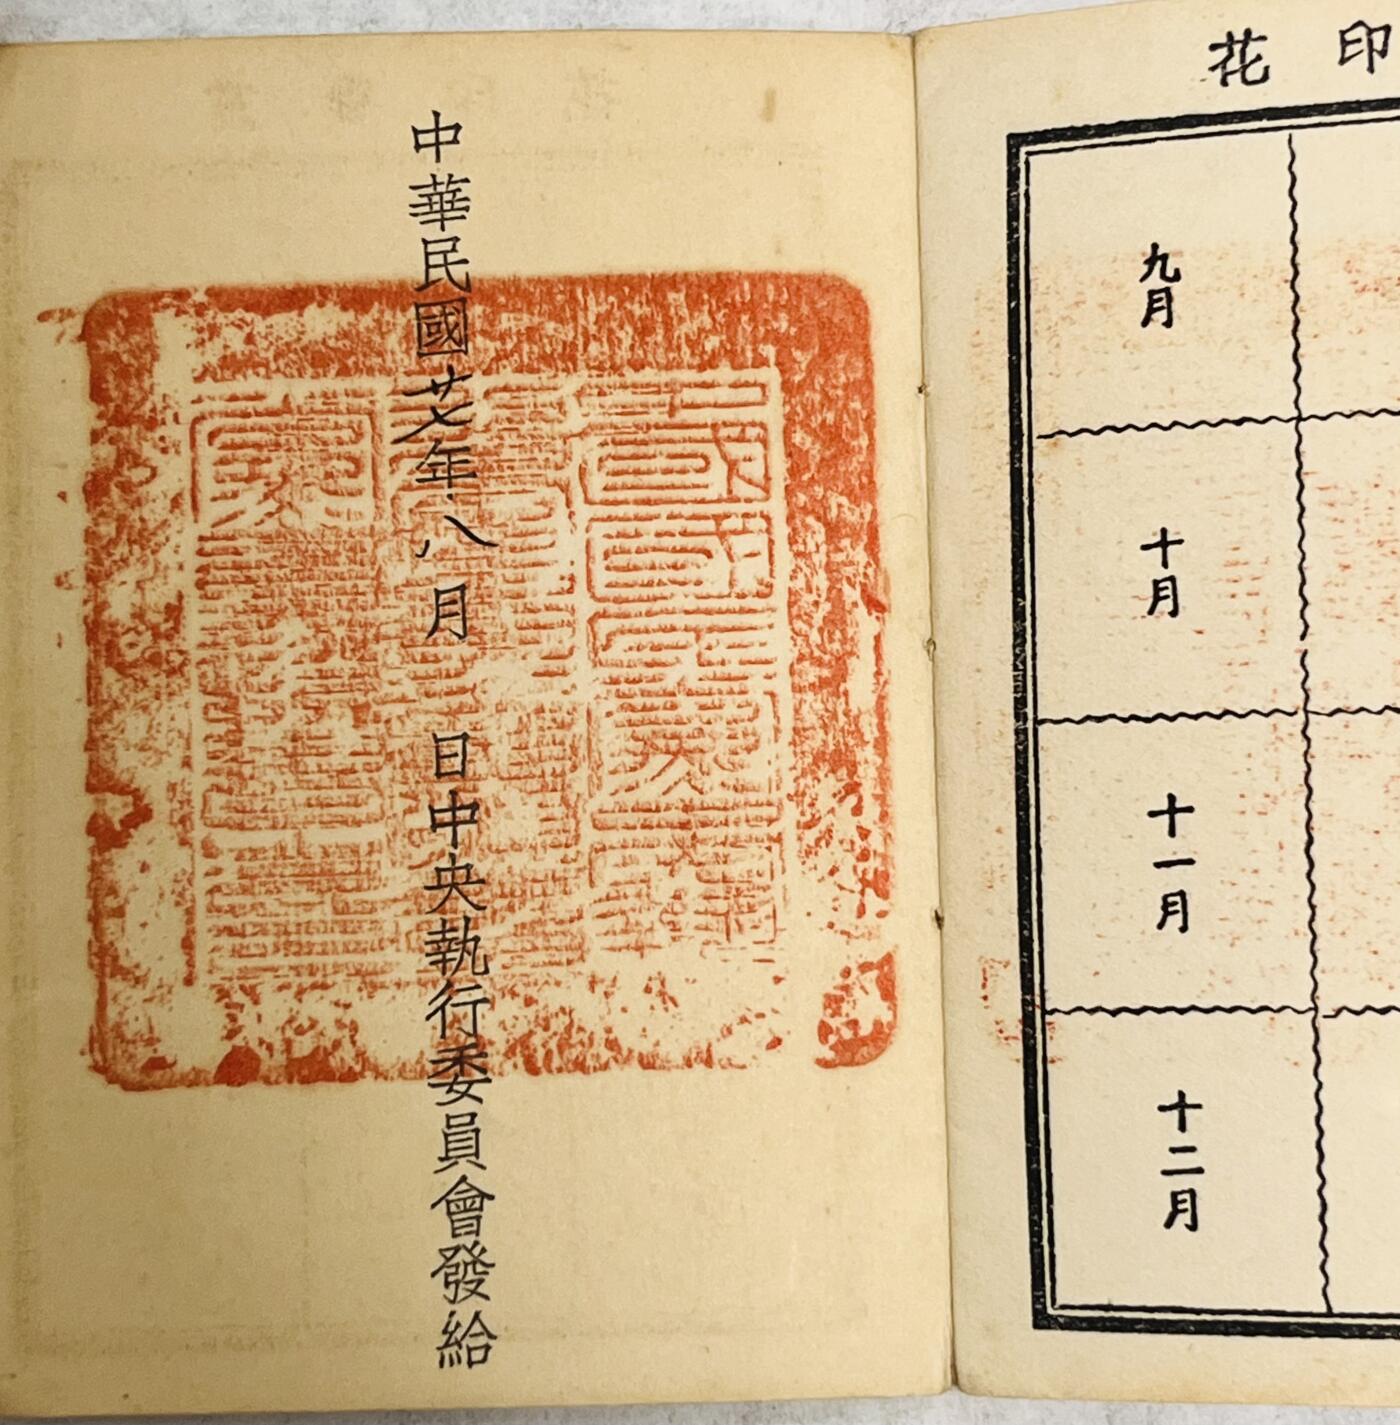 印花
九月
十月
十一月
十二月
中華民國廿七年八月 日中央執行委員會發給